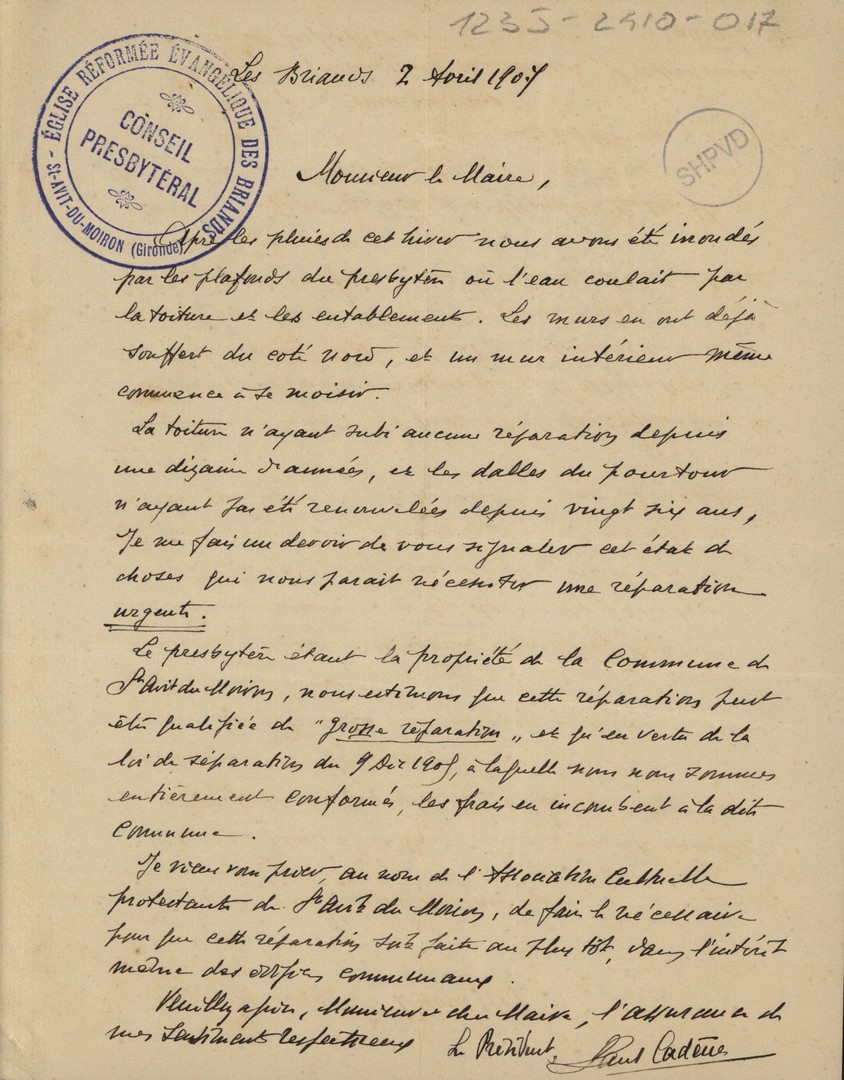 1235-2410-017
ÉGLISE RÉFORMÉE ÉVANGÉLIQUE DES BRIANDS
CONSEIL
PRESBYTÉRAL
St-AVIT-DU-MOIRON (Gironde)
SHPVD
Les Briands 2 Avril 1907
Monsieur le Maire,
Après les pluies de cet hiver nous avons été inondés
par les plafonds du presbytère où l'eau coulait par
la toiture et les entablement. Les murs en ont déjà
souffert du coté nord, et un mur intérieur même
commence à se moisir.
La toiture n'ayant subi aucune réparation depuis
une dizaine d'années, et les dalles du pourtour
n'ayant pas été renouvelées depuis vingt six ans,
Je me fais un devoir de vous signaler cet état de
choses qui nous parait nécessiter une réparation
urgente.
Le presbytère étant la propriété de la Commune de
St Avit du Moiron, nous estimons que cette réparation peut
être qualifiée de "grosse réparation" et qu'en vertu de la
loi de séparation du 9 Dic 1905, à laquelle nous nous sommes
entièrement conformés, les frais en incombent à la dite
commune.
Je viens vous prier, au nom de l'Association Cultuelle
protestante de St Avit du Moiron, de faire le nécessaire
pour que cette réparation soit faite au plus tôt, dans l'intérêt
même des édifices communaux.
Veuillez agréer, Monsieur le Maire, l'assurance de
mes sentiments respectueux
Le Président, Paul Cadène